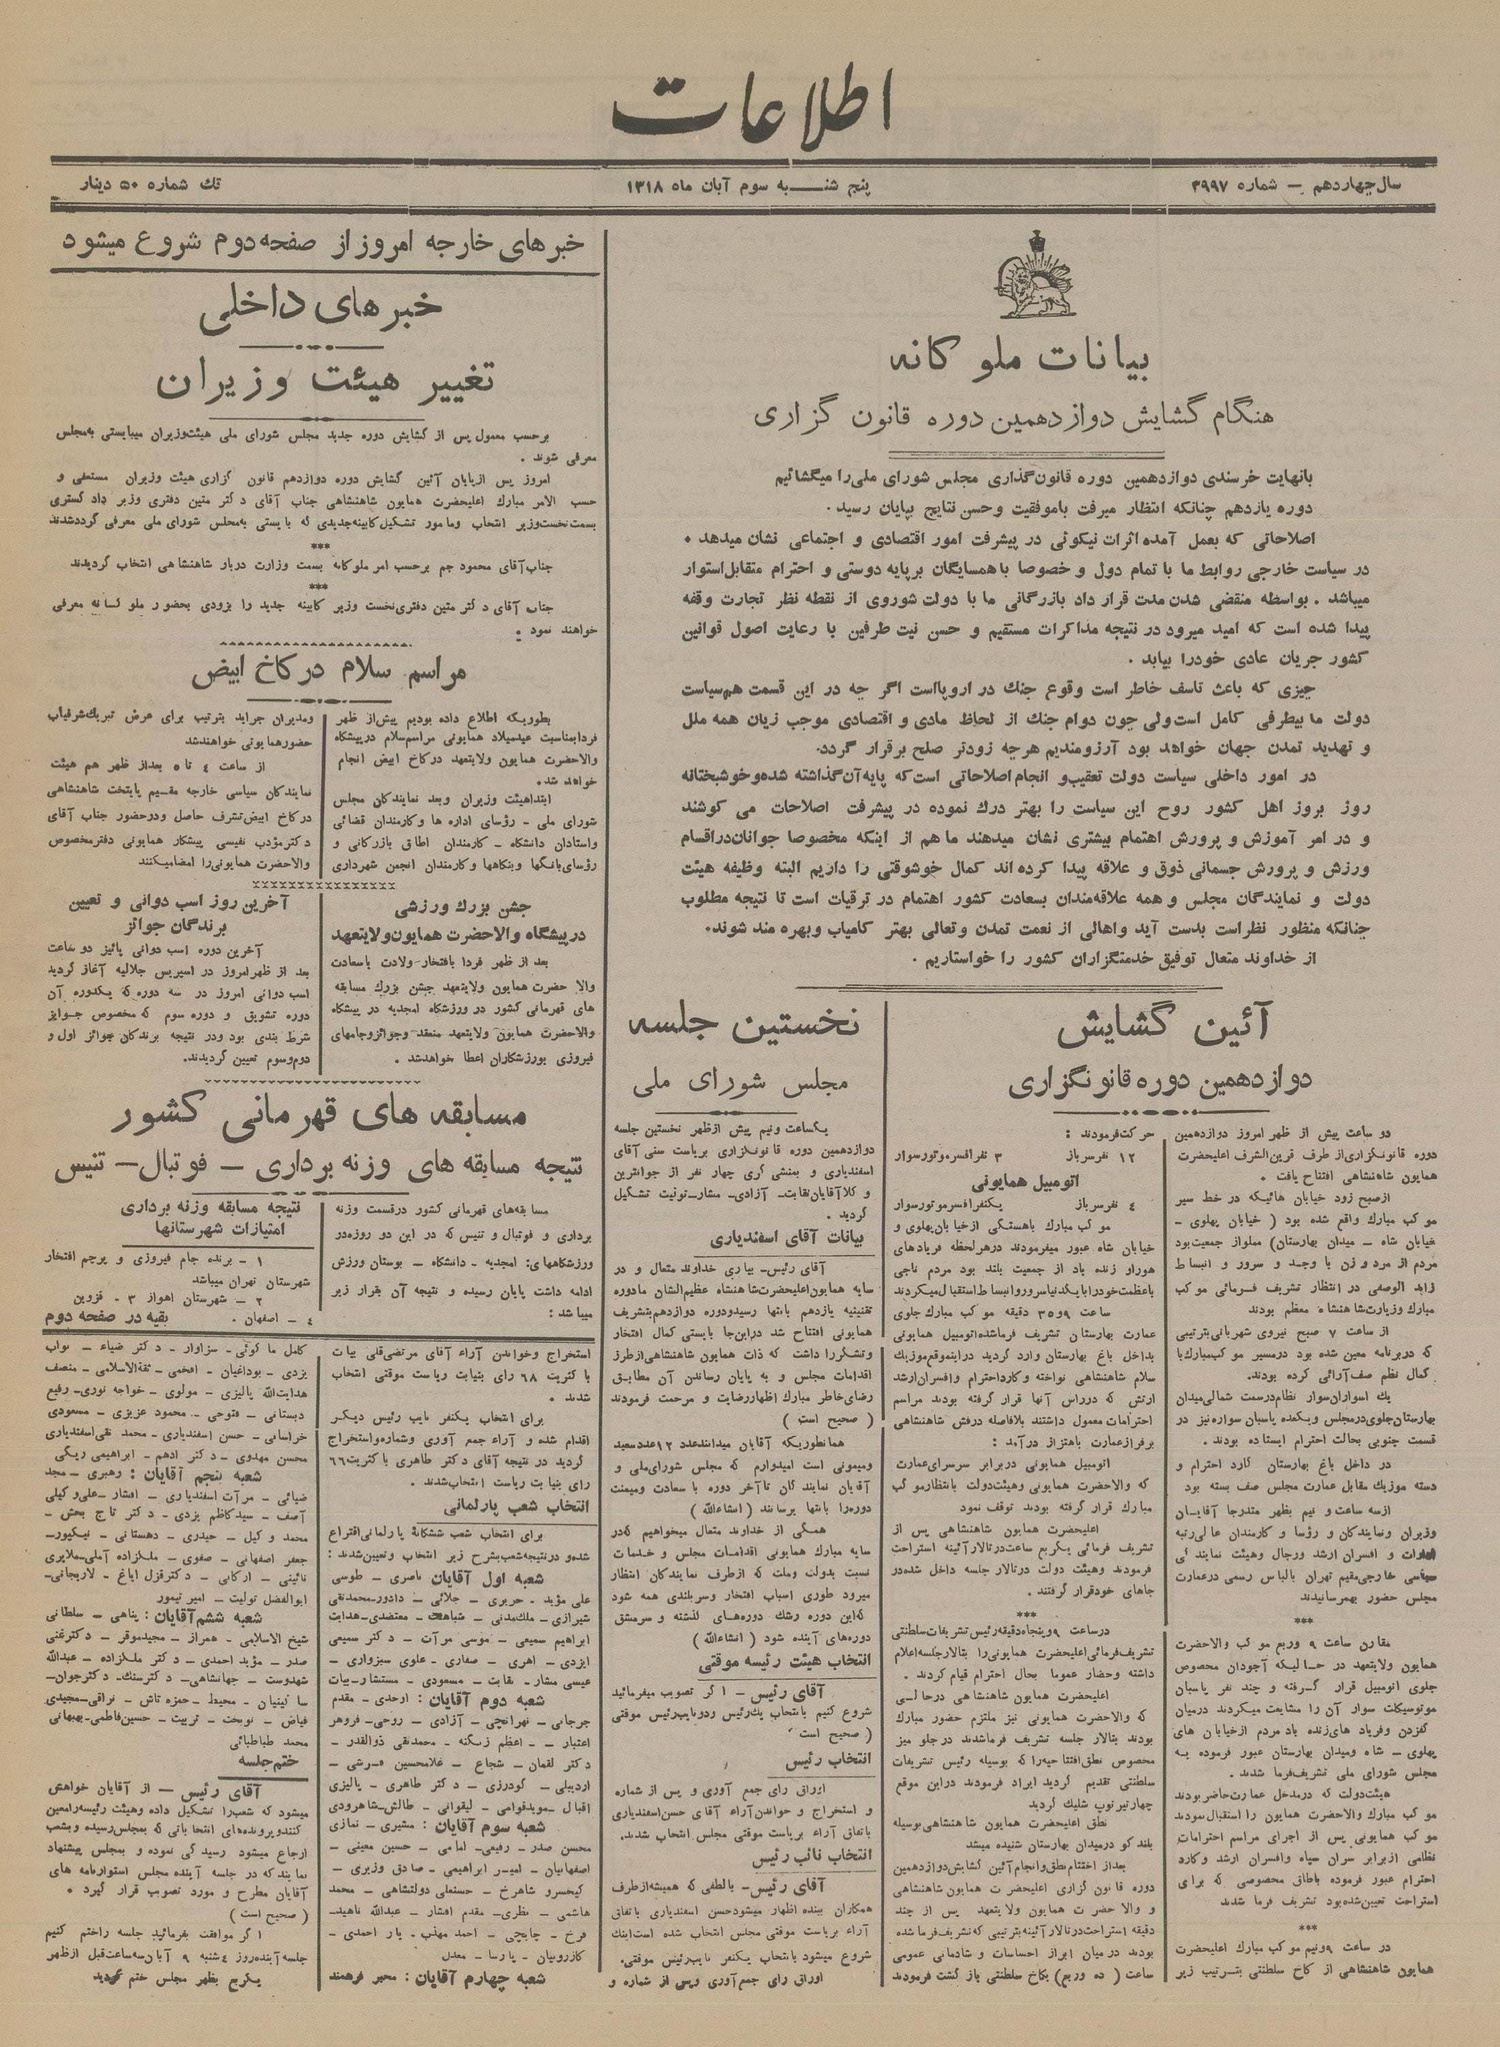 اطلاعات
سال چهاردهم – شماره ۳۹۹۷
پنج شنبه سوم آبان ماه ۱۳۱۸
تك شماره ۵۰ دینار
بیانات ملوکانه
هنگام گشایش دوازدهمین دوره قانون گزاری
بانهایت خرسندی دوازدهمین دوره قانون‌گذاری مجلس شورای ملی را میگشائیم
دوره یازدهم چنانکه انتظار میرفت باموفقیت وحسن نتایج بپایان رسید .
اصلاحاتی که بعمل آمده اثرات نیکوئی در پیشرفت امور اقتصادی و اجتماعی نشان میدهد .
در سیاست خارجی روابط ما با تمام دول و خصوصا با همسایگان برپایه دوستی و احترام متقابل استوار
میباشد . بواسطه منقضی شدن مدت قرار داد بازرگانی ما با دولت شوروی از نقطه نظر تجارت وقفه
پیدا شده است که امید میرود در نتیجه مذاکرات مستقیم و حسن نیت طرفین با رعایت اصول قوانین
کشور جریان عادی خودرا بیابد .
چیزی که باعث تاسف خاطر است وقوع جنك در اروپااست اگر چه در این قسمت هم سیاست
دولت ما بیطرفی کامل است ولی چون دوام جنك از لحاظ مادی و اقتصادی موجب زیان همه ملل
و تهدید تمدن جهان خواهد بود آرزومندیم هرچه زودتر صلح برقرار گردد.
در امور داخلی سیاست دولت تعقیب و انجام اصلاحاتی است که پایه آن گذاشته شده و خوشبختانه
روز بروز اهل کشور روح این سیاست را بهتر درك نموده در پیشرفت اصلاحات می کوشند
و در امر آموزش و پرورش اهتمام بیشتری نشان میدهند ما هم از اینکه مخصوصا جوانان در اقسام
ورزش و پرورش جسمانی ذوق و علاقه پیدا کرده اند کمال خوشوقتی را داریم البته وظیفه هیئت
دولت و نمایندگان مجلس و همه علاقه‌مندان بسعادت کشور اهتمام در ترقیات است تا نتیجه مطلوب
چنانکه منظور نظر است بدست آید واهالی از نعمت تمدن وتعالی بهتر کامیاب وبهره مند شوند.
از خداوند متعال توفیق خدمتگزاران کشور را خواستاریم .
آئین گشایش
دوازدهمین دوره قانونگزاری
دو ساعت پیش از ظهر امروز دوازدهمین
دوره قانونگزاری از طرف قرین الشرف اعلیحضرت
همایون شاهنشاهی افتتاح یافت .
ازصبح زود خیابان هائیکه در خط سیر
موکب مبارك واقع شده بود ( خیابان پهلوی -
خیابان شاه - میدان بهارستان) مملو از جمعیت بود
مردم از مرد و زن با وجد و سرور و انبساط
زاید الوصفی در انتظار تشریف فرمائی موکب
مبارك وزیارت شاهنشاه معظم بودند
از ساعت ۷ صبح نیروی شهربانی بترتیبی
که در برنامه معین شده بود درمسیر موکب مبارك با
کمال نظم صف آرائی کرده بودند.
یك اسواران سوار نظام درسمت شمالی میدان
بهارستان جلوی درمجلس ویکعده پاسبان سواره نیز در
قسمت جنوبی بحالت احترام ایستاده بودند .
در داخل باغ بهارستان گارد احترام و
دسته موزیك مقابل عمارت مجلس صف بسته بود
ازسه ساعت و نیم بظهر متدرجا آقایان
وزیران ونمایندگان و رؤسا و کارمندان عالی رتبه
ادارات و افسران ارشد ورجال وهیئت نمایندگی
سیاسی خارجی مقیم تهران بالباس رسمی درعمارت
مجلس حضور بهمرسانیدند
***
مقارن ساعت ۹ وربع موکب والاحضرت
همایون ولایتعهد در حالیکه آجودان مخصوص
جلوی اتومبیل قرار گرفته و چند نفر پاسبان
موتوسیکلت سوار آن را مشایعت میکردند درمیان
کف زدن وفریاد های زنده باد مردم از خیابان های
پهلوی - شاه ومیدان بهارستان عبور فرموده به
مجلس شورای ملی تشریف فرما شدند .
هیئت دولت که درمدخل عمارت حاضر بودند
موکب مبارك والاحضرت همایون را استقبال نمودند
موکب همایونی پس از اجرای مراسم احترامات
نظامی ازبرابر سران سپاه وافسران ارشد وگارد
احترام عبور فرموده باطاق مخصوصی که برای
استراحت تعیین شده بود تشریف فرما شدند
***
در ساعت ۹ ونیم موکب مبارك اعلیحضرت
همایون شاهنشاهی از کاخ سلطنتی بترتیب زیر
حرکت فرمودند :
۱۲ نفر سرباز ۳ نفر افسر موتورسوار
اتومبیل همایونی
٤ نفر سرباز یکنفر افسر موتورسوار
موکب مبارك باهستگی از خیابان پهلوی و
خیابان شاه عبور میفرمودند درهر لحظه فریادهای
هورا و زنده باد از جمعیت بلند بود مردم ناجی
باعظمت خودرا با یکدنیا سرور و انبساط استقبال میکردند
ساعت ۹ و ۳۵ دقیقه موکب مبارك جلوی
عمارت بهارستان تشریف فرما شده اتومبیل همایونی
بداخل باغ بهارستان وارد گردید دراین موقع موزیك
سلام شاهنشاهی نواخته و گارد احترام وافسران ارشد
ارتش که درراس آنها قرار گرفته بودند مراسم
احترامات معمول داشتند بلافاصله درفش شاهنشاهی
برفراز عمارت باهتزاز درآمد :
اتومبیل همایونی دربرابر سرسرای عمارت
که والاحضرت همایونی وهیئت دولت بانتظار موکب
مبارك قرار گرفته بودند توقف نمود
اعلیحضرت همایون شاهنشاهی پس از
تشریف فرمائی یکربع ساعت درتالار آئینه استراحت
فرمودند وهیئت دولت درتالار جلسه داخل شده در
جاهای خودقرار گرفتند .
***
درساعت ۹ وپنجاه دقیقه رئیس تشریفات سلطنتی
تشریف فرمائی اعلیحضرت همایونی را بتالار جلسه اعلام
داشته وحضار عموما بحال احترام قیام کردند .
اعلیحضرت همایون شاهنشاهی درحالی
که والاحضرت همایونی نیز ملتزم حضور مبارك
بودند بتالار جلسه تشریف فرما شدند در جلو میز
مخصوص نطق افتتاحیه را که بوسیله رئیس تشریفات
سلطنتی تقدیم گردید ایراد فرمودند دراین موقع
چهار تیر توپ شلیك گردید
نطق اعلیحضرت همایون شاهنشاهی بوسیله
بلند گو درمیدان بهارستان شنیده میشد
بعداز اختتام نطق وانجام آئین گشایش دوازدهمین
دوره قانون گزاری اعلیحضرت همایون شاهنشاهی
و والاحضرت همایون ولایتعهد پس از چند
دقیقه استراحت درتالار آئینه بترتیبی که تشریف فرما شده
بودند درمیان ابراز احساسات و شادمانی عمومی
ساعت ( ده وربع ) بکاخ سلطنتی بازگشت فرمودند
نخستین جلسه
مجلس شورای ملی
یکساعت ونیم پیش ازظهر نخستین جلسه
دوازدهمین دوره قانونگزاری بریاست سنی آقای
اسفندیاری و بمنشی گری چهار نفر از جوانترین
وکلا آقایان نقابت- آزادی- مشار- توئیت تشکیل
گردید .
بیانات آقای اسفندیاری
آقای رئیس- بیاری خداوند متعال و در
سایه همایون اعلیحضرت شاهنشاه عظیم الشان ما دوره
تقنینیه یازدهم بانتها رسید ودوره دوازدهم بتشریف
همایونی افتتاح شد در این جا بایستی کمال افتخار
وتشکر را داشت که ذات همایون شاهنشاهی ازطرز
اقدامات مجلس و به پایان رساندن آن مطابق
رضای خاطر مبارك اظهار رضایت و مرحمت فرمودند
( صحیح است )
همانطوریکه آقایان میدانند عدد ۱۲ عدد سعید
ومیمونی است امیدوارم که مجلس شورای ملی و
آقایان نمایندگان تا آخر دوره با سعادت ومیمنت
دوره را بانتها برسانند ( انشاءالله )
همگی از خداوند متعال میخواهیم که در
سایه مبارك همایونی اقدامات مجلس و خدمات
نسبت بدولت وملت که ازطرف نمایندگان انتظار
میرود طوری اسباب افتخار وسربلندی همه شود
که این دوره رشك دوره‌های گذشته و سرمشق
دوره‌های آینده شود ( انشاءالله )
انتخاب هیئت رئیسه موقتی
آقای رئیس - اگر تصویب میفرمائید
شروع کنیم بانتخاب یك رئیس ودو نایب رئیس موقتی
( صحیح است )
انتخاب رئیس
اوراق رای جمع آوری و پس از شماره
و استخراج و خواندن آراء آقای حسن اسفندیاری
باتفاق آراء بریاست موقتی مجلس انتخاب شدند.
انتخاب نائب رئیس
آقای رئیس- بالطفی که همیشه ازطرف
همکاران ببنده اظهار میشود حسن اسفندیاری باتفاق
آراء بریاست موقتی مجلس انتخاب شده است اینك
شروع میشود بانتخاب یکنفر نایب رئیس موقتی.
اوراق رای جمع آوری وپس از شماره و
خبرهای خارجه امروز از صفحه دوم شروع میشود
خبرهای داخلی
تغییر هیئت وزیران
برحسب معمول پس از گشایش دوره جدید مجلس شورای ملی هیئت وزیران میبایستی به مجلس
معرفی شوند .
امروز پس ازپایان آئین گشایش دوره دوازدهم قانون گزاری هیئت وزیران مستعفی و
حسب الامر مبارك اعلیحضرت همایون شاهنشاهی جناب آقای دکتر متین دفتری وزیر دادگستری
بسمت نخست وزیر انتخاب ومامور تشکیل کابینه جدیدی که بایستی به مجلس شورای ملی معرفی گردد شدند
***
جناب آقای محمود جم برحسب امر ملوکانه بسمت وزارت دربار شاهنشاهی انتخاب گردیدند
***
جناب آقای دکتر متین دفتری نخست وزیر کابینه جدید را بزودی بحضور ملوکانه معرفی
خواهند نمود .
مراسم سلام در کاخ ابیض
بطوریکه اطلاع داده بودیم پیش از ظهر
فردا بمناسبت عید میلاد همایونی مراسم سلام در پیشگاه
والاحضرت همایون ولایتعهد در کاخ ابیض انجام
خواهد شد.
ابتدا هیئت وزیران وبعد نمایندگان مجلس
شورای ملی - رؤسای اداره ها و کارمندان قضائی
واستادان دانشگاه - کارمندان اطاق بازرگانی و
رؤسای بانگها وبنگاهها وکارمندان انجمن شهرداری
ومدیران جراید بترتیب برای عرض تبریك شرفیاب
حضور همایونی خواهند شد
از ساعت ٤ تا ۵ بعداز ظهر هم هیئت
نمایندگان سیاسی خارجه مقیم پایتخت شاهنشاهی
در کاخ ابیض تشرف حاصل ودر حضور جناب آقای
دکتر مؤدب نفیسی پیشکار همایونی دفتر مخصوص
والاحضرت همایونی را امضا میکنند
جشن بزرك ورزشی
در پیشگاه والاحضرت همایون ولایتعهد
بعد از ظهر فردا بافتخار ولادت باسعادت
والاحضرت همایون ولایتعهد جشن بزرك مسابقه
های قهرمانی کشور در ورزشگاه امجدیه در پیشگاه
والاحضرت همایون ولایتعهد منعقد وجوائز وجامهای
فیروزی بورزشکاران اعطا خواهد شد .
آخرین روز اسب دوانی و تعیین
برندگان جوائز
آخرین دوره اسب دوانی پائیز دو ساعت
بعد از ظهر امروز در اسپریس جلالیه آغاز گردید
اسب دوانی امروز در سه دوره که یکدوره آن
دوره تشویق و دوره سوم که مخصوص جوایز
شرط بندی بود ودر نتیجه برندگان جوائز اول و
دوم وسوم تعیین گردیدند.
مسابقه های قهرمانی کشور
نتیجه مسابقه های وزنه برداری – فوتبال – تنیس
مسابقه‌های قهرمانی کشور درقسمت وزنه
برداری و فوتبال و تنیس که در این دو روزه در
ورزشگاههای: امجدیه - دانشگاه - بوستان ورزش
ادامه داشت پایان رسیده و نتیجه آن بقرار زیر
میباشد :
نتیجه مسابقه وزنه برداری
امتیازات شهرستانها
۱ - برنده جام فیروزی و پرچم افتخار
شهرستان تهران میباشد
۲ - شهرستان اهواز ۳ - قزوین
٤ - اصفهان . بقیه در صفحه دوم
استخراج وخواندن آراء آقای مرتضی قلی بیات
با کثریت ۶۸ رای بنیابت ریاست موقتی انتخاب
شدند .
برای انتخاب یکنفر نایب رئیس دیگر
اقدام شده و آراء جمع آوری وشماره واستخراج
گردید در نتیجه آقای دکتر طاهری با کثریت ۶۶
رای بنیابت ریاست انتخاب شدند.
انتخاب شعب پارلمانی
برای انتخاب شعب ششگانهٔ پارلمانی اقتراع
شده و درنتیجه شعب بشرح زیر انتخاب وتعیین شدند :
شعبه اول آقایان ناصری - طوسی
علی مؤید - حریری - جلائی - دادور - محمدتقی
شیرازی - ملك مدنی - شباهت - معتضدی - هدایت
ابراهیم سمیعی - موسی مرآت - دکتر سمیعی
ایزدی - اهری - صفاری - علوی سبزواری -
عیسی مشار - نقابت - مسعودی - مستشار - بیات
شعبه دوم آقایان : ارحدی - مقدم
جرجانی - تهرانچی - آزادی - روحی - فروهر
اعتبار - - اعظم زنگنه - محمدتقی ذوالقدر -
دکتر لقمان - شجاع - غلامحسین قرشی -
اردبیلی - گودرزی - دکتر طاهری - پالیزی
اقبال - مویدقوامی - لیقوانی - طالش - شاهرودی
شعبه سوم آقایان : مشیری - نمازی
محسن صدر - رفیعی - امامی - حسین معینی -
اصفهانیان - امیر ابراهیمی - صادق وزیری -
کیخسرو شاهرخ - حسنعلی دولتشاهی - محمد
هاشمی - نظری - مقدم افشار - عبدالله ناهید -
فرخ - چایچی - احمد مهذب - یار احمدی -
کازرونیان - پارسا - معدل
شعبه چهارم آقایان : مخبر فرهمند
کامل ماکوئی - سزاوار - دکتر ضیاء - نواب
یزدی - بوداغیان - افخمی - ثقة الاسلامی - منصف
هدایت الله پالیزی - مولوی - خواجه نوری - رفیع
دبستانی - فتوحی - محمود عزیزی - مسعودی
خراسانی - حسن اسفندیاری - محمد تقی اسفندیاری
محسن مهدوی - دکتر ادهم - ابراهیمی ریگی
شعبه پنجم آقایان : رهبری - مجد
ضیائی - مرآت اسفندیاری - افشار - علی وکیلی
آصف - سید کاظم یزدی - دکتر تاج بخش -
محمد وکیل - حیدری - دهستانی - نیکپور -
جعفر اصفهانی - صفوی - ملکزاده آملی - ملایری
نائینی - ارگانی - دکتر قزل ایاغ - لاریجانی -
ابوالفضل تولیت - امیر تیمور
شعبه ششم آقایان : پناهی - سلطانی
شیخ الاسلامی - همراز - مجید موقر - دکتر غنی
صدر - مؤید احمدی - دکتر ملکزاده - عبدالله
شهدوست - جهانشاهی - دکتر سنك - دکتر جوان -
ساگینیان - محیط - حمزه تاش - نراقی - مجیدی
فیاض - نوبخت - تربیت - حسین فاطمی - بهبهانی
محمد طباطبائی
ختم جلسه
آقای رئیس - از آقایان خواهش
میشود که شعب را تشکیل داده وهیئت رئیسه را معین
کنند و پرونده های انتخاباتی که بمجلس رسیده و بشعب
ارجاع میشود رسیدگی نموده و بمجلس پیشنهاد
نمایند که در جلسه آینده مجلس استوارنامه های
آقایان مطرح و مورد تصویب قرار گیرد .
( صحیح است )
اگر موافقت بفرمائید جلسه را ختم کنیم
جلسه آینده روز ٤ شنبه ۹ آبان سه ساعت قبل ازظهر
یکربع بظهر مجلس ختم گردید